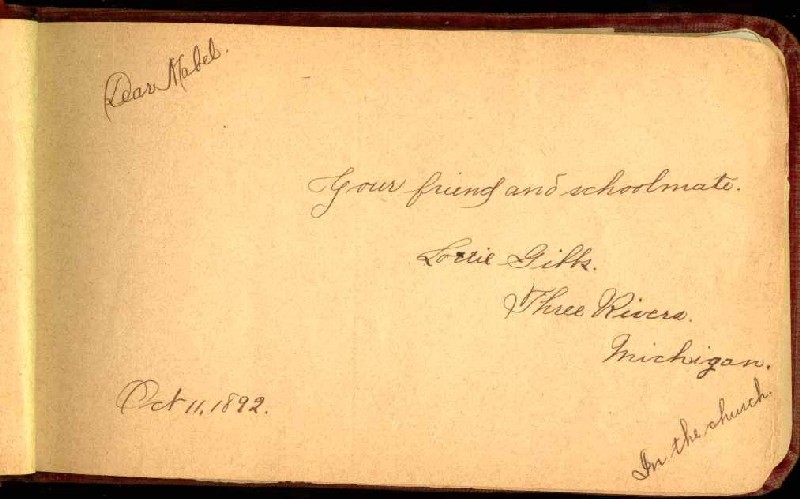 Dear Mabel.
Your friend and schoolmate.
Gibbs.
Three Rivers.
Michigan.
Oct 11, 1892.
In the church.